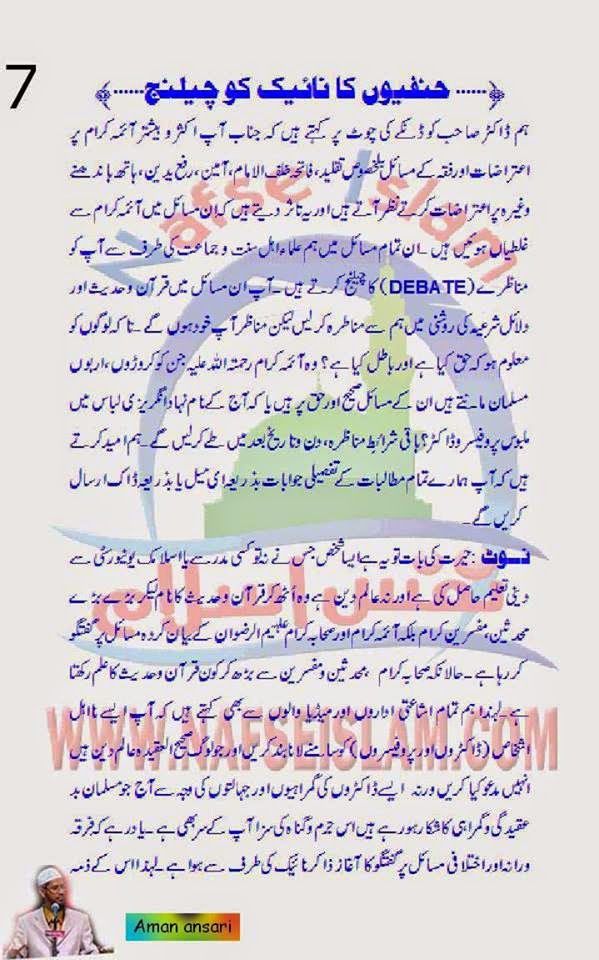 7
حنفیوں کا نائیک کو چیلنج
ہم ڈاکٹر صاحب کو ڈنکے کی چوٹ پر کہتے ہیں کہ جناب آپ اکثر و بیشتر آئمہ کرام پر
اعتراضات اور فقہ کے مسائل بلخصوص تقلید، فاتحہ خلف الامام، آمین، رفع یدین، ہاتھ باندھنے
وغیرہ پر اعتراضات کرتے نظر آتے ہیں اور یہ تاثر دیتے ہیں کہ ان مسائل میں آئمہ کرام سے
غلطیاں ہوئیں ہیں۔ ان تمام مسائل میں ہم علماء اہل سنت و جماعت کی طرف سے آپ کو
مناظرے (DEBATE) کا چیلنج کرتے ہیں۔ آپ ان مسائل میں قرآن و حدیث اور
دلائل شرعیہ کی روشنی میں ہم سے مناظرہ کرلیں لیکن مناظر آپ خود ہوں گے۔ تاکہ لوگوں کو
معلوم ہو کہ حق کیا ہے اور باطل کیا ہے؟ وہ آئمہ کرام رحمتہ اللہ علیہ جن کو کروڑوں، اربوں
مسلمان مانتے ہیں ان کے مسائل صحیح اور حق پر ہیں یا کہ آج کے نام نہاد انگریزی لباس میں
ملبوس پروفیسر و ڈاکٹر؟ باقی شرائط مناظرہ، دن و تاریخ بعد میں طے کرلیں گے۔ ہم امید کرتے
ہیں کہ آپ ہمارے تمام مطالبات کے تفصیلی جوابات بذریعہ ای میل یا بذریعہ ڈاک ارسال
کریں گے۔
نوٹ: حیرت کی بات تو یہ ہے ایسا شخص جس نے نہ تو کسی مدرسے یا اسلامک یونیورسٹی سے
دینی تعلیم حاصل کی ہے اور نہ عالم دین ہے وہ اُٹھ کر قرآن و حدیث کا نام لیکر بڑے بڑے
محدثین، مفسرین کرام بلکہ آئمہ کرام اور صحابہ کرام علیہم الرضوان کے بیان کردہ مسائل پر گفتگو
کر رہا ہے۔ حالانکہ صحابہ کرام، محدثین و مفسرین سے بڑھ کر کون قرآن و حدیث کا علم رکھتا
ہے۔ لہذا ہم تمام اشاعتی اداروں اور میڈیا والوں سے بھی کہتے ہیں کہ آپ ایسے نا اہل
اشخاص (ڈاکٹروں اور پروفیسروں) کو سامنے لانا بند کریں اور جو لوگ صحیح العقیدہ عالم دین ہیں
انہیں مدعو کیا کریں ورنہ ایسے ڈاکٹروں کی گمراہیوں اور جہالتوں کی وجہ سے آج جو مسلمان بد
عقیدگی و گمراہی کا شکار ہو رہے ہیں اس جرم و گناہ کی سزا آپ کے سر بھی ہے۔ یاد رہے کہ فرقہ
ورانہ اور اختلافی مسائل پر گفتگو کا آغاز ذاکر نائیک کی طرف سے ہوا ہے۔ لہذا اس کے ذمہ
Nafse Islam
نفس اسلام
WWW.NAFSEISLAM.COM
Aman ansari